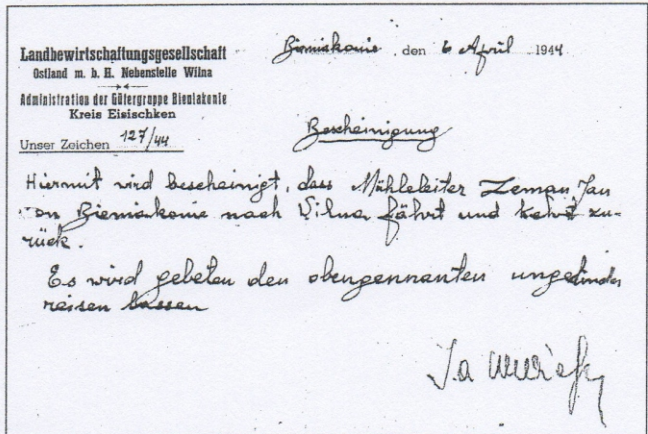 Landbewirtschaftungsgesellschaft
Ostland m. b. H. Nebenstelle Wilna
Administration der Gütergruppe Bieniakonie
Kreis Eisischken
Unser Zeichen 127/44
Bieniakonie, den 6 April 1944
Bescheinigung
Hiermit wird bescheinigt, dass Mühleleiter Zeman Jan
on Bieniakonie nach Vilna fährt und kehrt zu-
rück.
Es wird gebeten den obengennanten ungehindert
reisen lassen